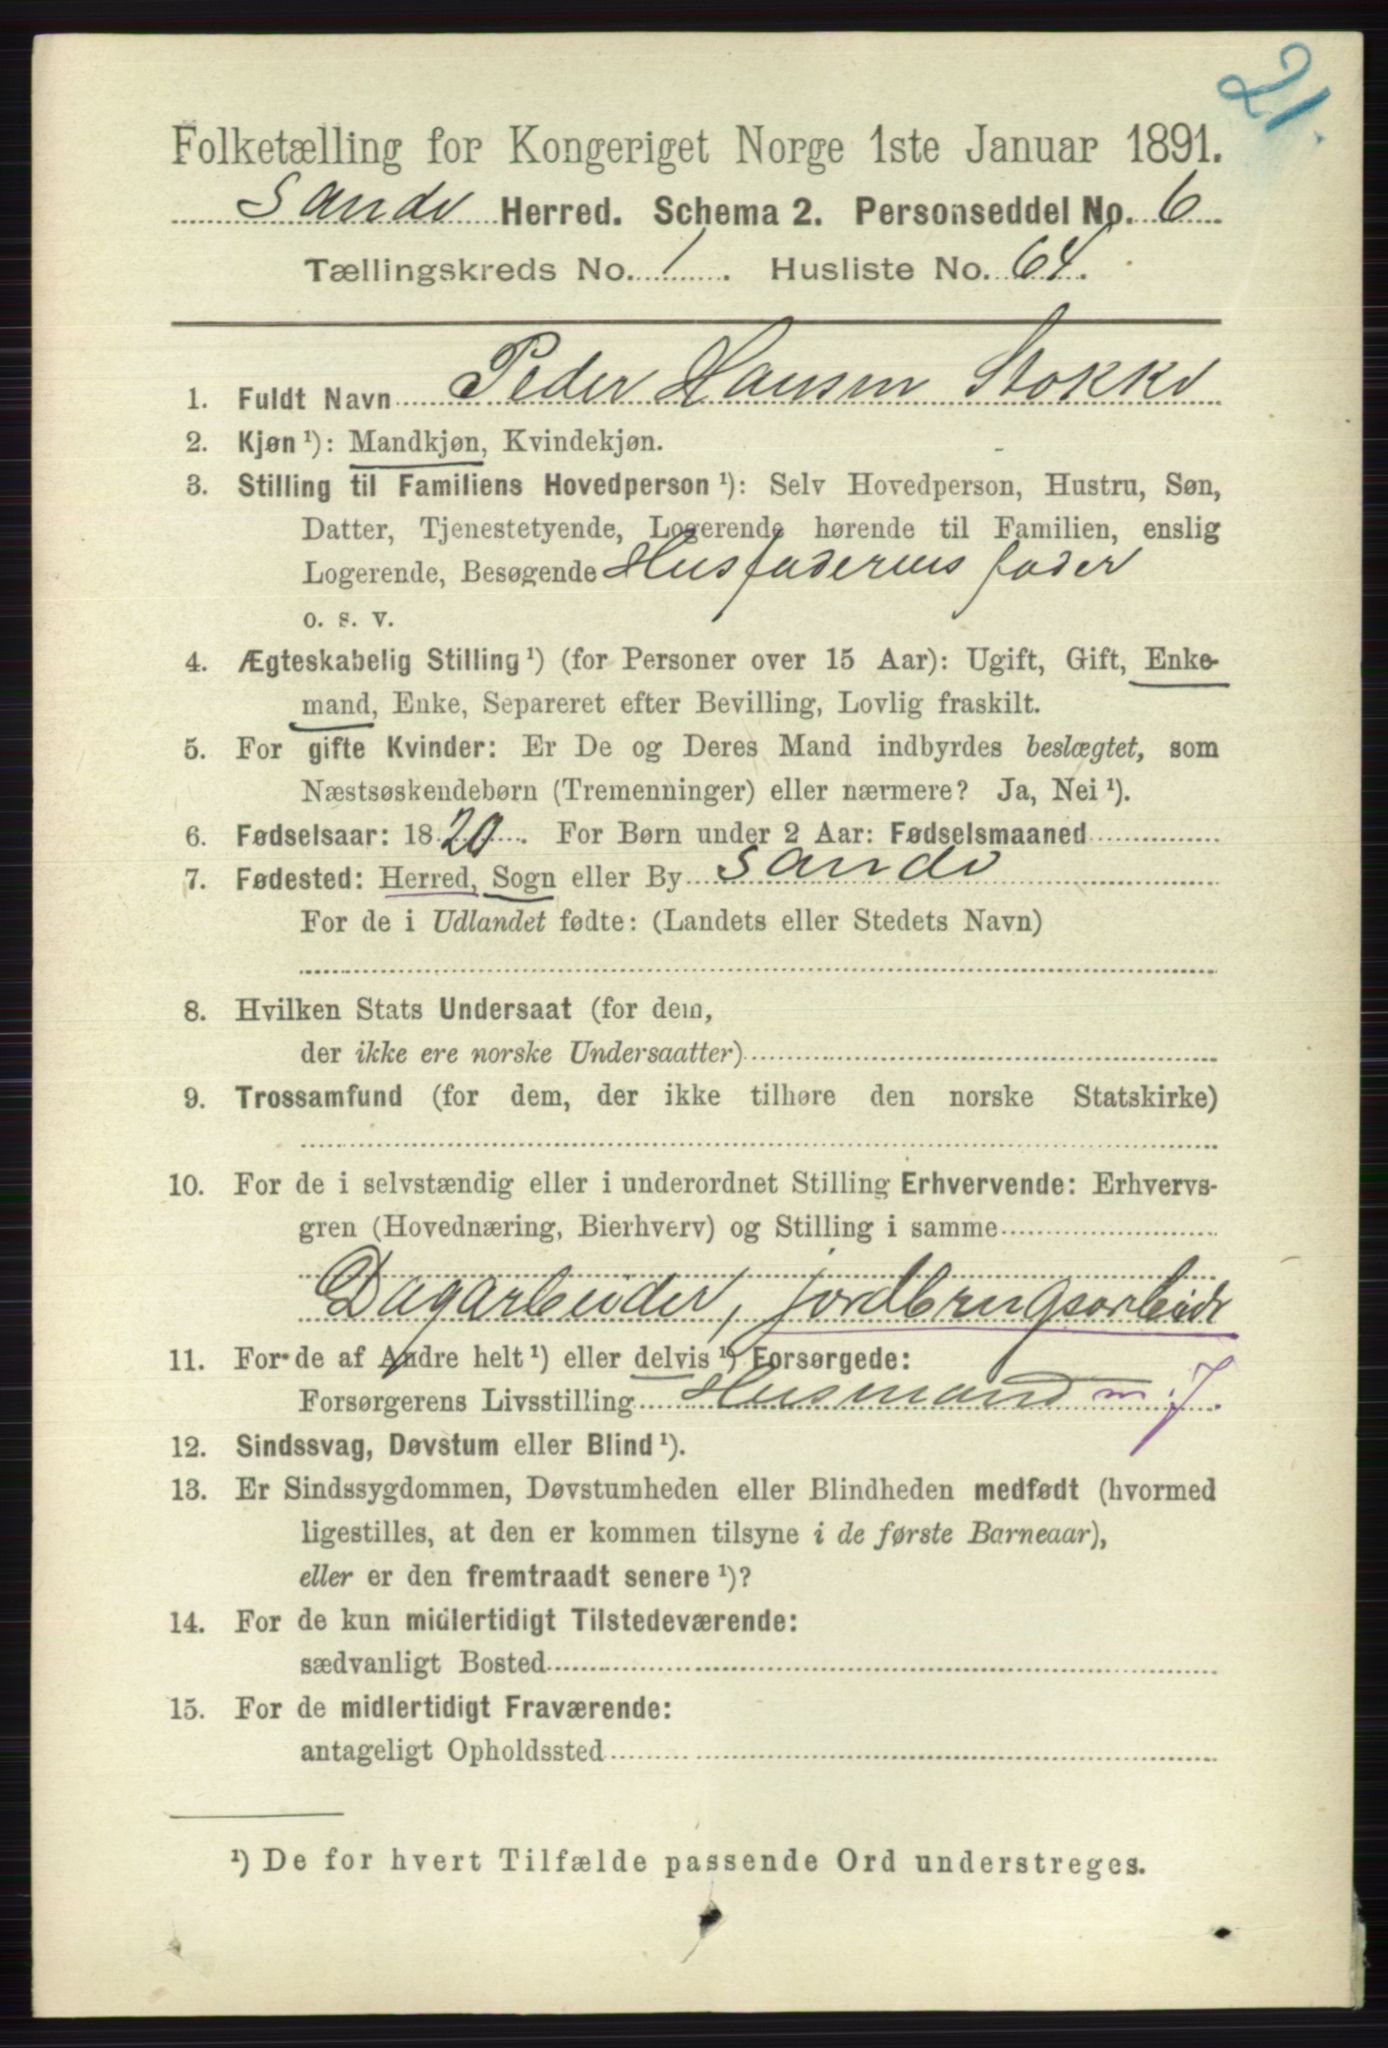 21.
Folketælling for Kongeriget Norge 1ste Januar 1891.
Sande Herred. Schema 2. Personseddel No. 6
Tællingskreds No. 1. Husliste No. 64.
1. Fuldt Navn Peder Hansen Stokke
2. Kjøn ¹): Mandkjøn, Kvindekjøn.
3. Stilling til Familiens Hovedperson ¹): Selv Hovedperson, Hustru, Søn,
Datter, Tjenestetyende, Logerende hørende til Familien, enslig
Logerende, Besøgende Husfaderens fader
o. s. v.
4. Ægteskabelig Stilling ¹) (for Personer over 15 Aar): Ugift, Gift, Enke-
mand, Enke, Separeret efter Bevilling, Lovlig fraskilt.
5. For gifte Kvinder: Er De og Deres Mand indbyrdes beslægtet, som
Næstsøskendebørn (Tremenninger) eller nærmere? Ja, Nei ¹).
6. Fødselsaar: 1820. For Børn under 2 Aar: Fødselsmaaned
7. Fødested: Herred, Sogn eller By Sande
For de i Udlandet fødte: (Landets eller Stedets Navn)
8. Hvilken Stats Undersaat (for dem,
der ikke ere norske Undersaatter)
9. Trossamfund (for dem, der ikke tilhøre den norske Statskirke)
10. For de i selvstændig eller i underordnet Stilling Erhvervende: Erhvervs-
gren (Hovednæring, Bierhverv) og Stilling i samme
Dagarbeider, jordbrugsarbeide
11. For de af Andre helt ¹) eller delvis ¹) Forsørgede:
Forsørgerens Livsstilling Husmand m. J.
12. Sindssvag, Døvstum eller Blind ¹).
13. Er Sindssygdommen, Døvstumheden eller Blindheden medfødt (hvormed
ligestilles, at den er kommen tilsyne i de første Barneaar),
eller er den fremtraadt senere ¹)?
14. For de kun midlertidigt Tilstedeværende:
sædvanligt Bosted
15. For de midlertidigt Fraværende:
antageligt Opholdssted
¹) De for hvert Tilfælde passende Ord understreges.